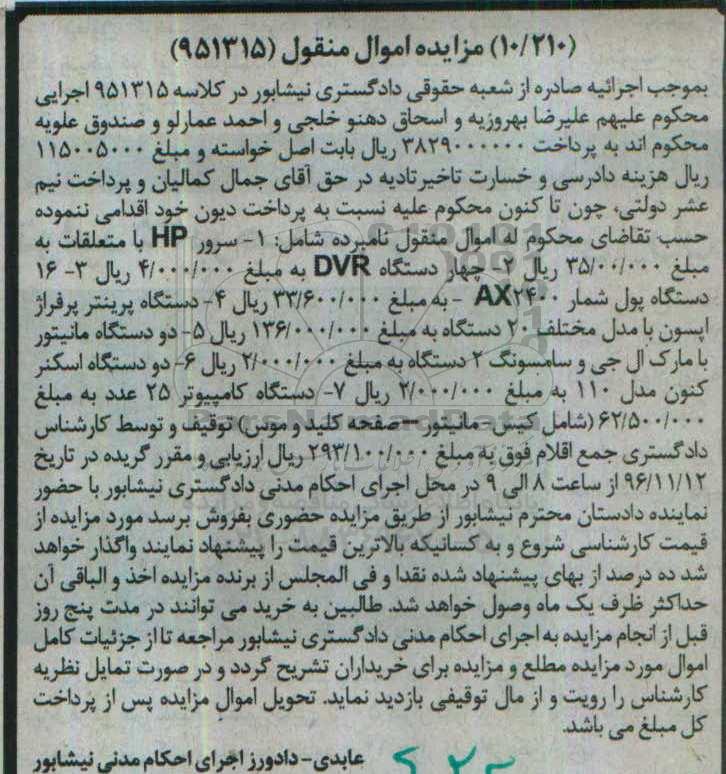 (۱۰/۲۱۰) مزایده اموال منقول (۹۵۱۳۱۵)
بموجب اجرائیه صادره از شعبه حقوقی دادگستری نیشابور در کلاسه ۹۵۱۳۱۵ اجرایی
محکوم علیهم علیرضا بهروزیه و اسحاق دهنو خلجی و احمد عمارلو و صندوق علویه
محکوم اند به پرداخت ۳۸۲۹۰۰۰۰۰۰ ریال بابت اصل خواسته و مبلغ ۱۱۵۰۰۵۰۰۰
ریال هزینه دادرسی و خسارت تاخیرتادیه در حق آقای جمال کمالیان و پرداخت نیم
عشر دولتی، چون تا کنون محکوم علیه نسبت به پرداخت دیون خود اقدامی ننموده
حسب تقاضای محکوم له اموال منقول نامبرده شامل: ۱- سرور HP با متعلقات به
مبلغ ۳۵/۰۰۰/۰۰۰ ریال ۲- چهار دستگاه DVR به مبلغ ۴/۰۰۰/۰۰۰ ریال ۳- ۱۶
دستگاه پول شمار AX۲۴۰۰ - به مبلغ ۳۳/۶۰۰/۰۰۰ ریال ۴- دستگاه پرینتر پرفراژ
اپسون با مدل مختلف ۲۰ دستگاه به مبلغ ۱۳۶/۰۰۰/۰۰۰ ریال ۵- دو دستگاه مانیتور
با مارک ال جی و سامسونگ ۲ دستگاه به مبلغ ۲/۰۰۰/۰۰۰ ریال ۶- دو دستگاه اسکنر
کنون مدل ۱۱۰ به مبلغ ۲/۰۰۰/۰۰۰ ریال ۷- دستگاه کامپیوتر ۲۵ عدد به مبلغ
۶۲/۵۰۰/۰۰۰ (شامل کیس- مانیتور – صفحه کلید و موس) توقیف و توسط کارشناس
دادگستری جمع اقلام فوق به مبلغ ۲۹۳/۱۰۰/۰۰۰ ریال ارزیابی و مقرر گریده در تاریخ
۹۶/۱۱/۱۲ از ساعت ۸ الی ۹ در محل اجرای احکام مدنی دادگستری نیشابور با حضور
نماینده دادستان محترم نیشابور از طریق مزایده حضوری بفروش برسد مورد مزایده از
قیمت کارشناسی شروع و به کسانیکه بالاترین قیمت را پیشنهاد نمایند واگذار خواهد
شد ده درصد از بهای پیشنهاد شده نقدا و فی المجلس از برنده مزایده اخذ و الباقی آن
حداکثر ظرف یک ماه وصول خواهد شد. طالبین به خرید می توانند در مدت پنج روز
قبل از انجام مزایده به اجرای احکام مدنی دادگستری نیشابور مراجعه تا از جزئیات کامل
اموال مورد مزایده مطلع و مزایده برای خریداران تشریح گردد و در صورت تمایل نظریه
کارشناس را رویت و از مال توقیفی بازدید نماید. تحویل اموال مزایده پس از پرداخت
کل مبلغ می باشد.
عابدی- دادورز اجرای احکام مدنی نیشابور
ParsNamadData